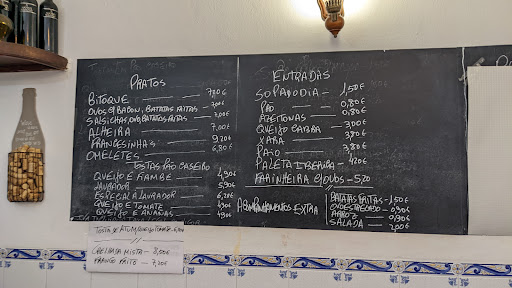 PRATOS
BITOQUE 7,80€
OVOS C/ BACON, BATATAS FRITAS 7,00€
SALSICHAS, OVO BATATAS FRITAS 7,00€
ALHEIRA 7,00€
FRANCESINHAS 9,20€
OMELETES 6,80€
TOSTAS PÃO CASEIRO
QUEIJO E FIAMBRE 4,90€
LAVRADOR 5,90€
ESPECIAL LAVRADOR 6,20€
QUEIJO E TOMATE 4,90€
QUEIJO E ANANAS 4,90€
CREPIOCA MISTA — 8,00€
FRANGO FRITO — 7,20€
ENTRADAS
SOPA DO DIA — 1,50€
PÃO 0,80€
AZEITONAS 0,80€
QUEIJO CABRA 3,00€
XARA 3,80€
PAIO 3,80€
PALETA IBERICA 4,20€
FARINHEIRA C/OVOS — 5,20
ACOMPANHAMENTOS EXTRA
BATATAS FRITAS — 1,50€
OVO ESTRELADO — 0,90€
ARROZ 0,90€
SALADA 2,00€